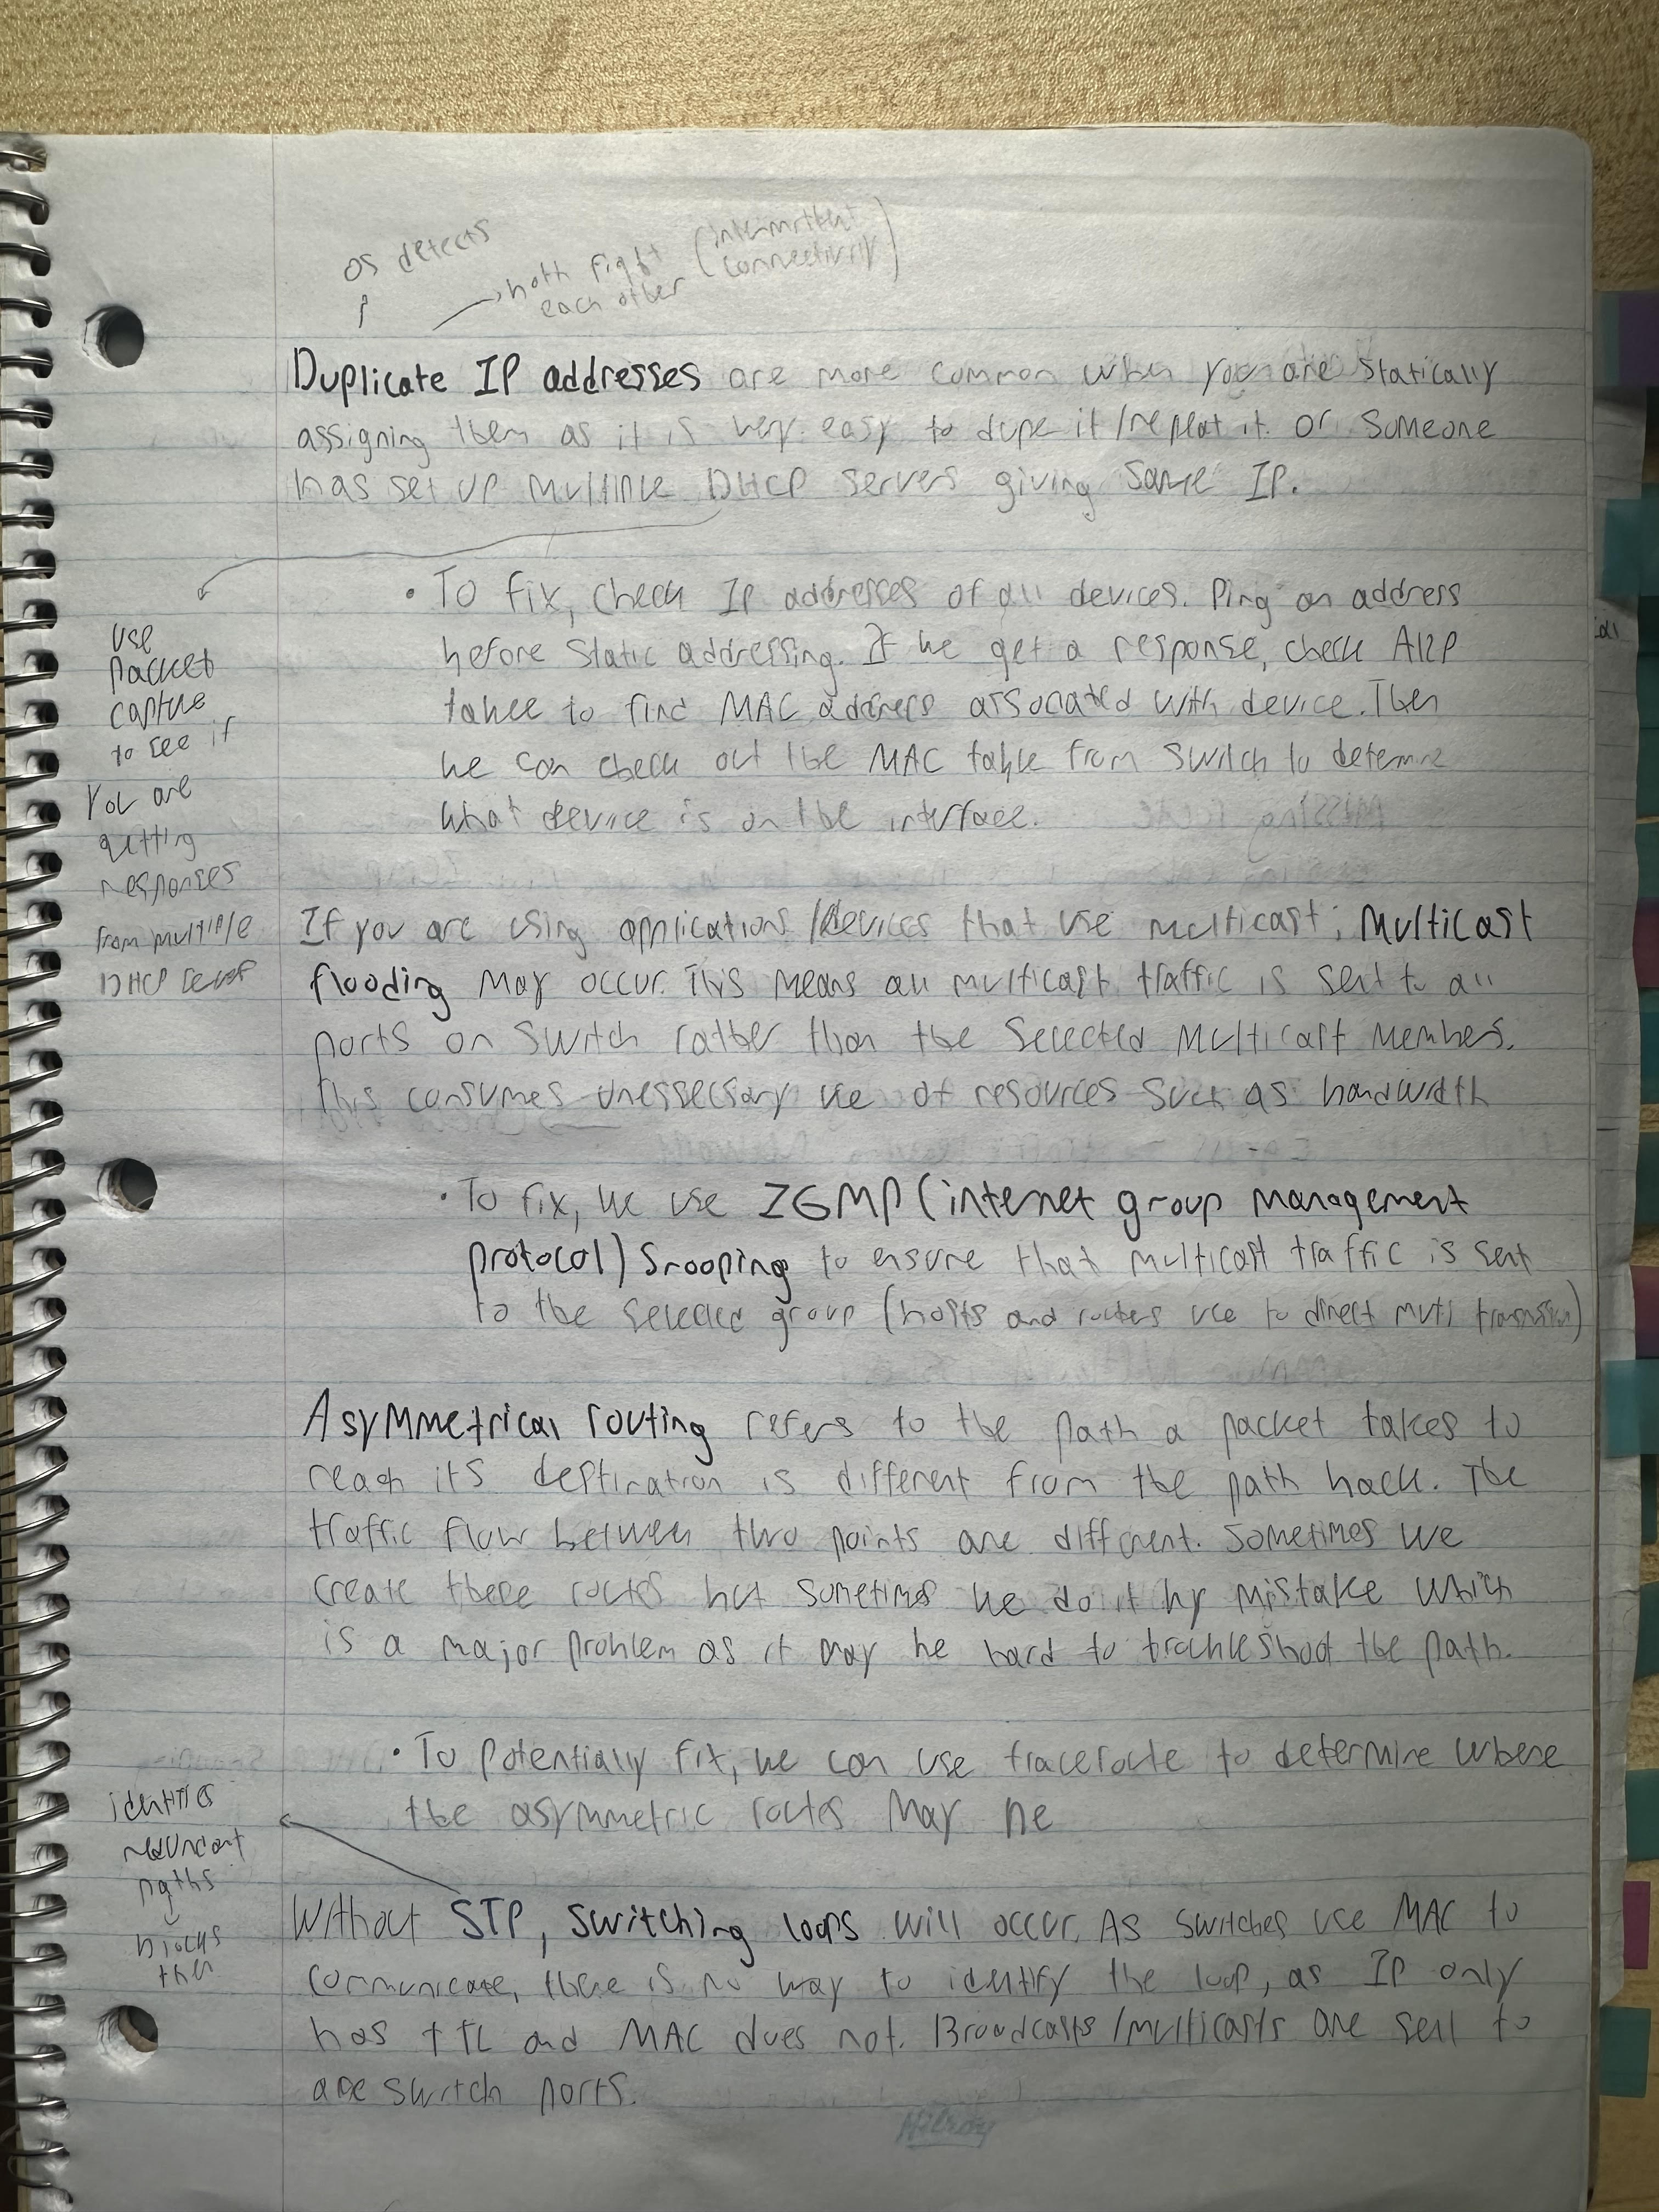 OS detects
both fight (intermittent
each other connectivity)
Duplicate IP addresses are more common when you are statically
assigning them as it is very easy to dupe it/repeat it. Or someone
has set up multiple DHCP servers giving same IP.
• To fix, check IP addresses of all devices. Ping an address
before static addressing. If we get a response, check ARP
table to find MAC address associated with device. Then
we can check out the MAC table from switch to determine
what device is on the interface.
use
packet
capture
to see if
you are
getting
responses
from multiple
DHCP server
If you are using applications/devices that use multicast, Multicast
flooding may occur. This means all multicast traffic is sent to all
ports on switch rather than the selected multicast members.
This consumes unessecsary use of resources such as bandwidth
• To fix, we use IGMP (internet group management
protocol) snooping to ensure that multicast traffic is sent
to the selected group (hosts and routers use to direct multi transmission)
Asymmetrical routing refers to the path a packet takes to
reach its destination is different from the path back. The
traffic flow between two points are different. Sometimes we
create these routes but sometimes we do it by mistake which
is a major problem as it may be hard to troubleshoot the path.
• To potentially fix, we can use traceroute to determine where
the asymmetric routes may be
identifies
redundant
paths
blocks
them
Without STP, switching loops will occur. As switches use MAC to
communicate, there is no way to identify the loop, as IP only
has TTL and MAC does not. Broadcasts/multicasts are sent to
are switch ports.
Hilroy